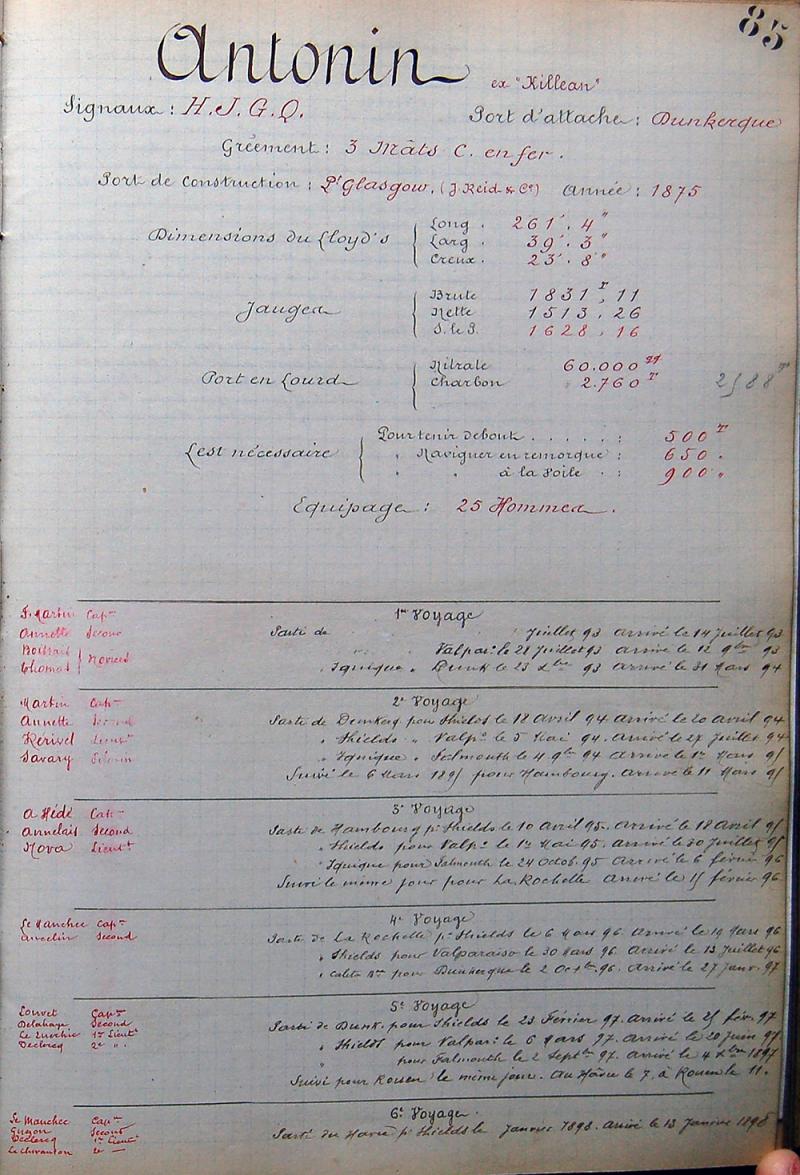 85
Antonin
ex "Killean"
Signaux : H. J. G. Q. Port d'attache : Dunkerque
Gréement : 3 Mâts C. en fer.
Port de Construction : Pt Glasgow, (J. Reid & Co) Année : 1875
Dimensions du Lloyd's
Long . 261'. 4"
Larg . 39'. 3"
Creux . 23'. 8"
Jauges
Brute 1831 Tx, 11
Nette 1513, 26
S. le S. 1628, 16
Port en Lourd
Nitrate 60.000 qx
Charbon 2.760 T 2588 T
Lest nécessaire
Pour tenir debout . . . . . : 500 T
" Naviguer en remorque : 650 .
" " à la Voile . : 900 "
Equipage : 25 Hommes .
1er Voyage
Martin Capne
Annette Second Parti de Juillet 93 Arrivé le 14 Juillet 93
Valpar: le 21 Juillet 93 Arrivé le 12 9bre 93
Thomas Novices " Iquique " Dunk le 23 Xbre 93 Arrivé le 31 Mars 94
2e Voyage
Martin Capne
Annette Second Parti de Dunkerq pour Shields le 18 Avril 94. Arrivé le 20 Avril 94
Kérivel Lieut " Shields " Valpo le 5 Mai 94. Arrivé le 27 Juillet 94
Savary " Iquique " Falmouth le 4 9bre 94 Arrivé le 1er Mars 95
Suivi le 6 Mars 1895 pour Hambourg. Arrivé le 11 Mars 95
3e Voyage
A Hédé Capne
Annelais Second Parti de Hambourg pr Shields le 10 Avril 95. Arrivé le 18 Avril 95
Nova Lieutt " Shields pour Valpo le 1er Mai 95. Arrivé le 30 Juillet 95
" Iquique pour Falmouth le 24 Octob. 95 Arrivé le 6 février 96
Suivi le même jour pour La Rochelle Arrivé le 15 février 96
4e Voyage
Le Manchec Capne
Second Parti de La Rochelle pr Shields le 6 Mars 96 Arrivé le 19 Mars 96
" Shields pour Valparaiso le 30 Mars 96. Arrivé le 13 Juillet 96
" Caleta Bna pour Dunkerque le 2 Octbre 96. Arrivé le 27 Janv. 97
5e Voyage
Louvet Capne
Delahaye Second Parti de Dunk. pour Shields le 23 Février 97. Arrivé le 25 fév. 97
1er Lieutt " Shields pour Valpar: le 6 Mars 97. Arrivé le 20 Juin 97
Declercq 2e " . pour Falmouth le 2 Septbre 97. Arrivé le 4 Xbre 1897
Suivi pour Rouen le même jour. Au Hâvre le 7, à Rouen le 11.
6e Voyage.
Le Manchec Capne
Guyon Second Parti du Havre pr Shields le Janvier 1898. Arrivé le 13 Janvier 1898
Declercq 1er Lieutt
2e —